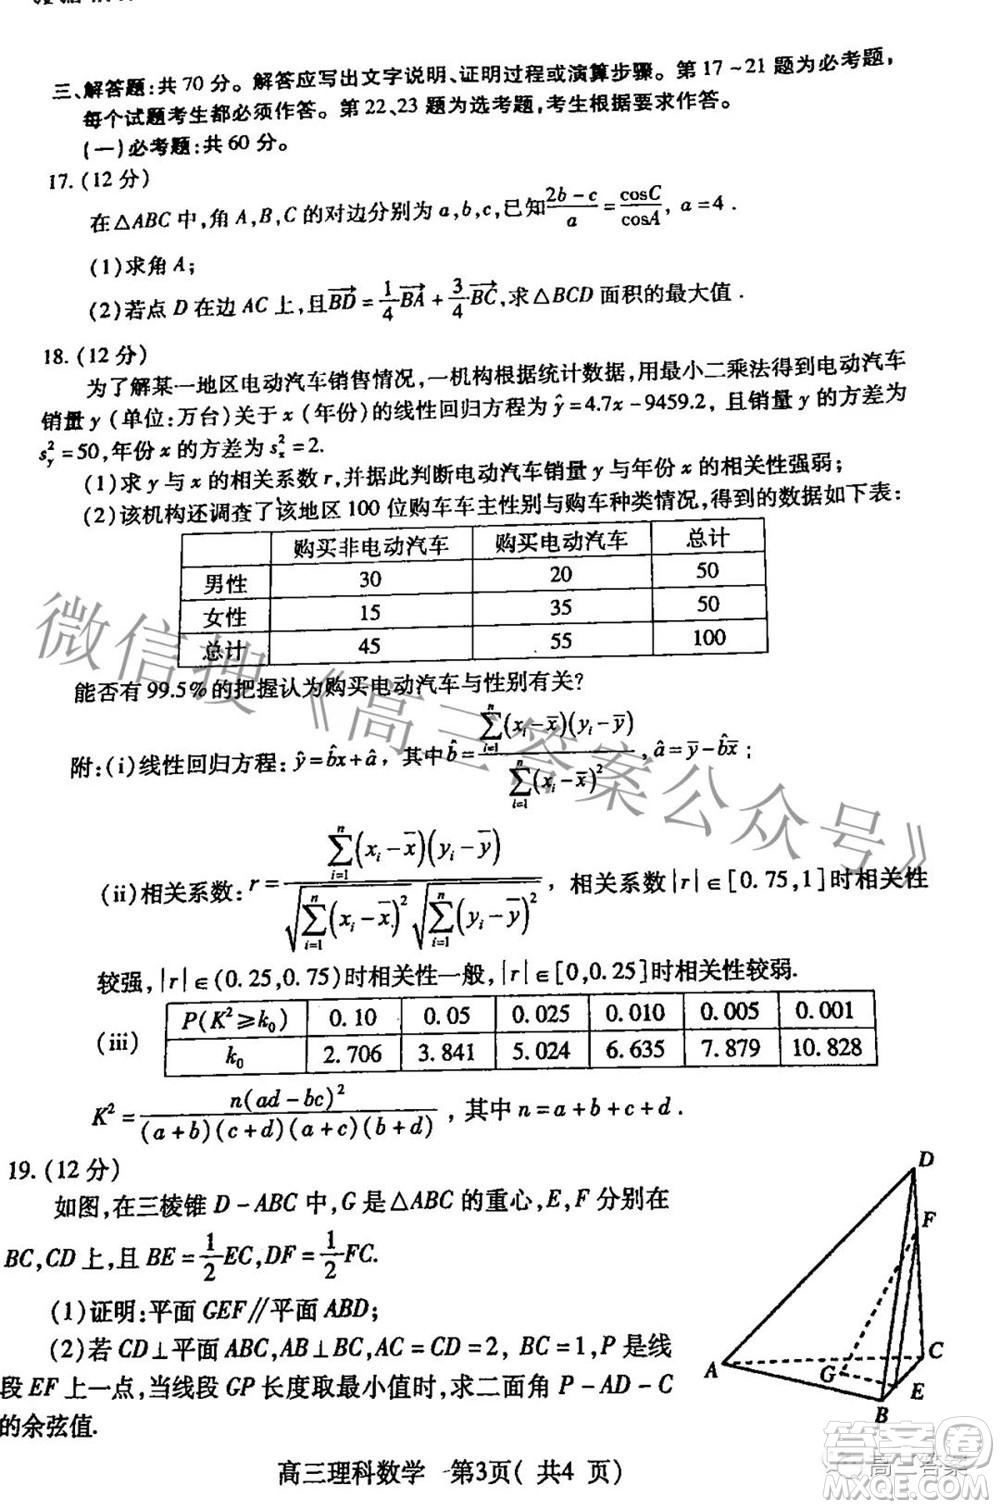 三、解答题:共 70 分。解答应写出文字说明、证明过程或演算步骤。第 17~21 题为必考题,
每个试题考生都必须作答。第 22、23 题为选考题,考生根据要求作答。
(一)必考题:共 60 分。
17. (12 分)
在△ABC 中,角 A,B,C 的对边分别为 a,b,c,已知 (2b-c)/a = cosC/cosA, a=4.
(1)求角 A;
(2)若点 D 在边 AC 上,且 \overrightarrow{BD} = 1/4 \overrightarrow{BA} + 3/4 \overrightarrow{BC},求△BCD 面积的最大值.
18. (12 分)
为了解某一地区电动汽车销售情况,一机构根据统计数据,用最小二乘法得到电动汽车
销量 y (单位:万台)关于 x (年份)的线性回归方程为 ŷ=4.7x-9459.2, 且销量 y 的方差为
s_y^2=50,年份 x 的方差为 s_x^2=2.
(1)求 y 与 x 的相关系数 r,并据此判断电动汽车销量 y 与年份 x 的相关性强弱;
(2)该机构还调查了该地区 100 位购车车主性别与购车种类情况,得到的数据如下表:
购买非电动汽车 购买电动汽车 总计
男性 30 20 50
女性 15 35 50
总计 45 55 100
能否有 99.5%的把握认为购买电动汽车与性别有关?
附:(i)线性回归方程: ŷ=b̂x+â, 其中 b̂ = \frac{\sum_{i=1}^{n}(x_i-\bar{x})(y_i-\bar{y})}{\sum_{i=1}^{n}(x_i-\bar{x})^2}, â=ȳ-b̂x̄;
(ii)相关系数: r = \frac{\sum_{i=1}^{n}(x_i-\bar{x})(y_i-\bar{y})}{\sqrt{\sum_{i=1}^{n}(x_i-\bar{x})^2}\sqrt{\sum_{i=1}^{n}(y_i-\bar{y})^2}}, 相关系数|r|∈[0.75,1]时相关性
较强,|r|∈(0.25,0.75)时相关性一般,|r|∈[0,0.25]时相关性较弱.
(iii) P(K²≥k₀) 0.10 0.05 0.025 0.010 0.005 0.001
k₀ 2.706 3.841 5.024 6.635 7.879 10.828
K² = \frac{n(ad-bc)^2}{(a+b)(c+d)(a+c)(b+d)}, 其中 n=a+b+c+d.
19. (12 分)
如图,在三棱锥 D-ABC 中,G 是△ABC 的重心,E,F 分别在
BC,CD 上,且 BE=1/2 EC,DF=1/2 FC.
(1)证明:平面 GEF∥平面 ABD;
(2)若 CD⊥平面 ABC,AB⊥BC,AC=CD=2, BC=1,P 是线
段 EF 上一点,当线段 GP 长度取最小值时,求二面角 P-AD-C
的余弦值.
D
F
A
G
C
E
B
高三理科数学 -第3页( 共4 页)
微信搜《高三答案公众号》
答案圈
高三答案